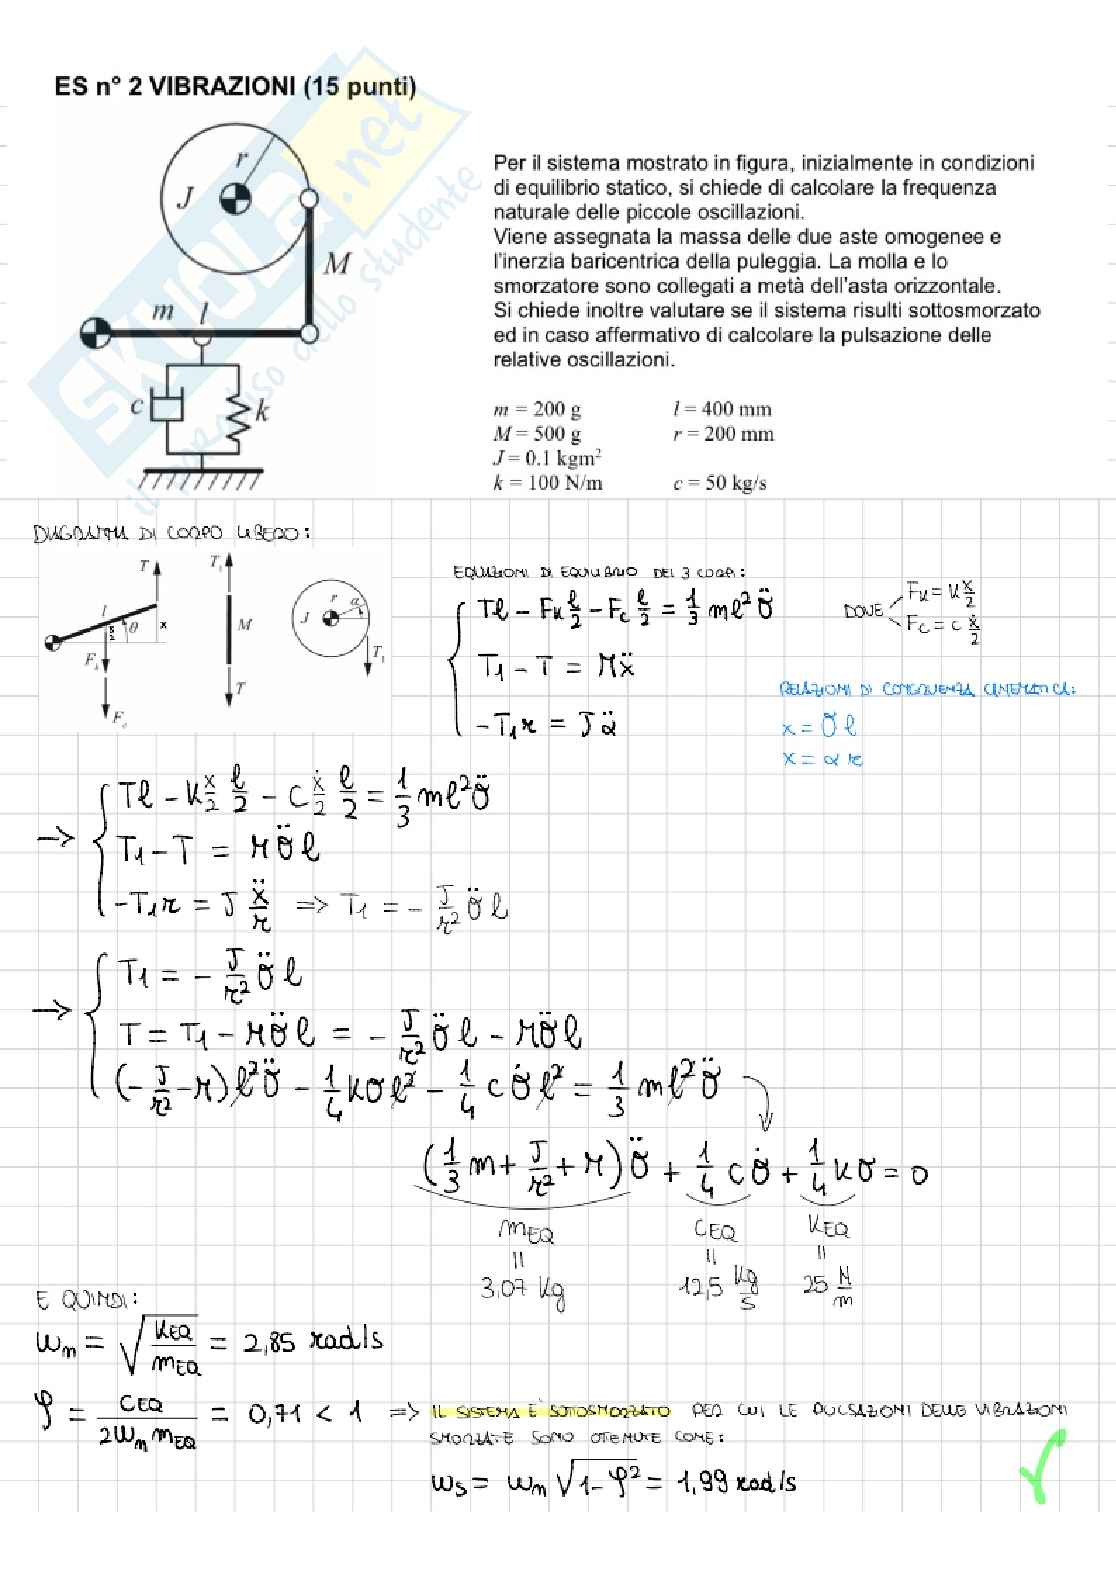 ES n° 2 VIBRAZIONI (15 punti)
r
J
M
m
l
c
k
Per il sistema mostrato in figura, inizialmente in condizioni
di equilibrio statico, si chiede di calcolare la frequenza
naturale delle piccole oscillazioni.
Viene assegnata la massa delle due aste omogenee e
l'inerzia baricentrica della puleggia. La molla e lo
smorzatore sono collegati a metà dell'asta orizzontale.
Si chiede inoltre valutare se il sistema risulti sottosmorzato
ed in caso affermativo di calcolare la pulsazione delle
relative oscillazioni.
m = 200 g l = 400 mm
M = 500 g r = 200 mm
J = 0.1 kgm²
k = 100 N/m c = 50 kg/s
SKUOLA.net
il paradiso dello studente
DIAGRAMMA DI CORPO LIBERO:
T l θ x x/2 Fₖ F_c
T₁ M T
J r α T₁
EQUAZIONI DI EQUILIBRIO DEI 3 CORPI:
Tl - Fₖ l/2 - F_c l/2 = 1/3 ml² θ̈
T₁ - T = Mẍ
-T₁r = Jα̈
DOVE Fₖ = k x/2
F_c = c ẋ/2
RELAZIONI DI CONGRUENZA CINEMATICA:
x = θl
x = αr
→ Tl - k x/2 l/2 - c ẋ/2 l/2 = 1/3 ml² θ̈
T₁ - T = M θ̈ l
-T₁r = J ẍ/r => T₁ = - J/r² θ̈ l
→ T₁ = - J/r² θ̈ l
T = T₁ - M θ̈ l = - J/r² θ̈ l - M θ̈ l
(- J/r² - M) l² θ̈ - 1/4 kθl² - 1/4 c θ̇ l² = 1/3 ml² θ̈
(1/3 m + J/r² + M) θ̈ + 1/4 c θ̇ + 1/4 kθ = 0
m_EQ c_EQ k_EQ
= = =
3,07 kg 12,5 kg/s 25 N/m
E QUINDI:
ω_n = √(k_EQ/m_EQ) = 2,85 rad/s
φ = c_EQ/(2ω_n m_EQ) = 0,71 < 1 => IL SISTEMA E' SOTTOSMORZATO PER CUI LE PULSAZIONI DELLE VIBRAZIONI
SMORZATE SONO OTENUTE COME:
ω_s = ω_n √(1-φ²) = 1,99 rad/s